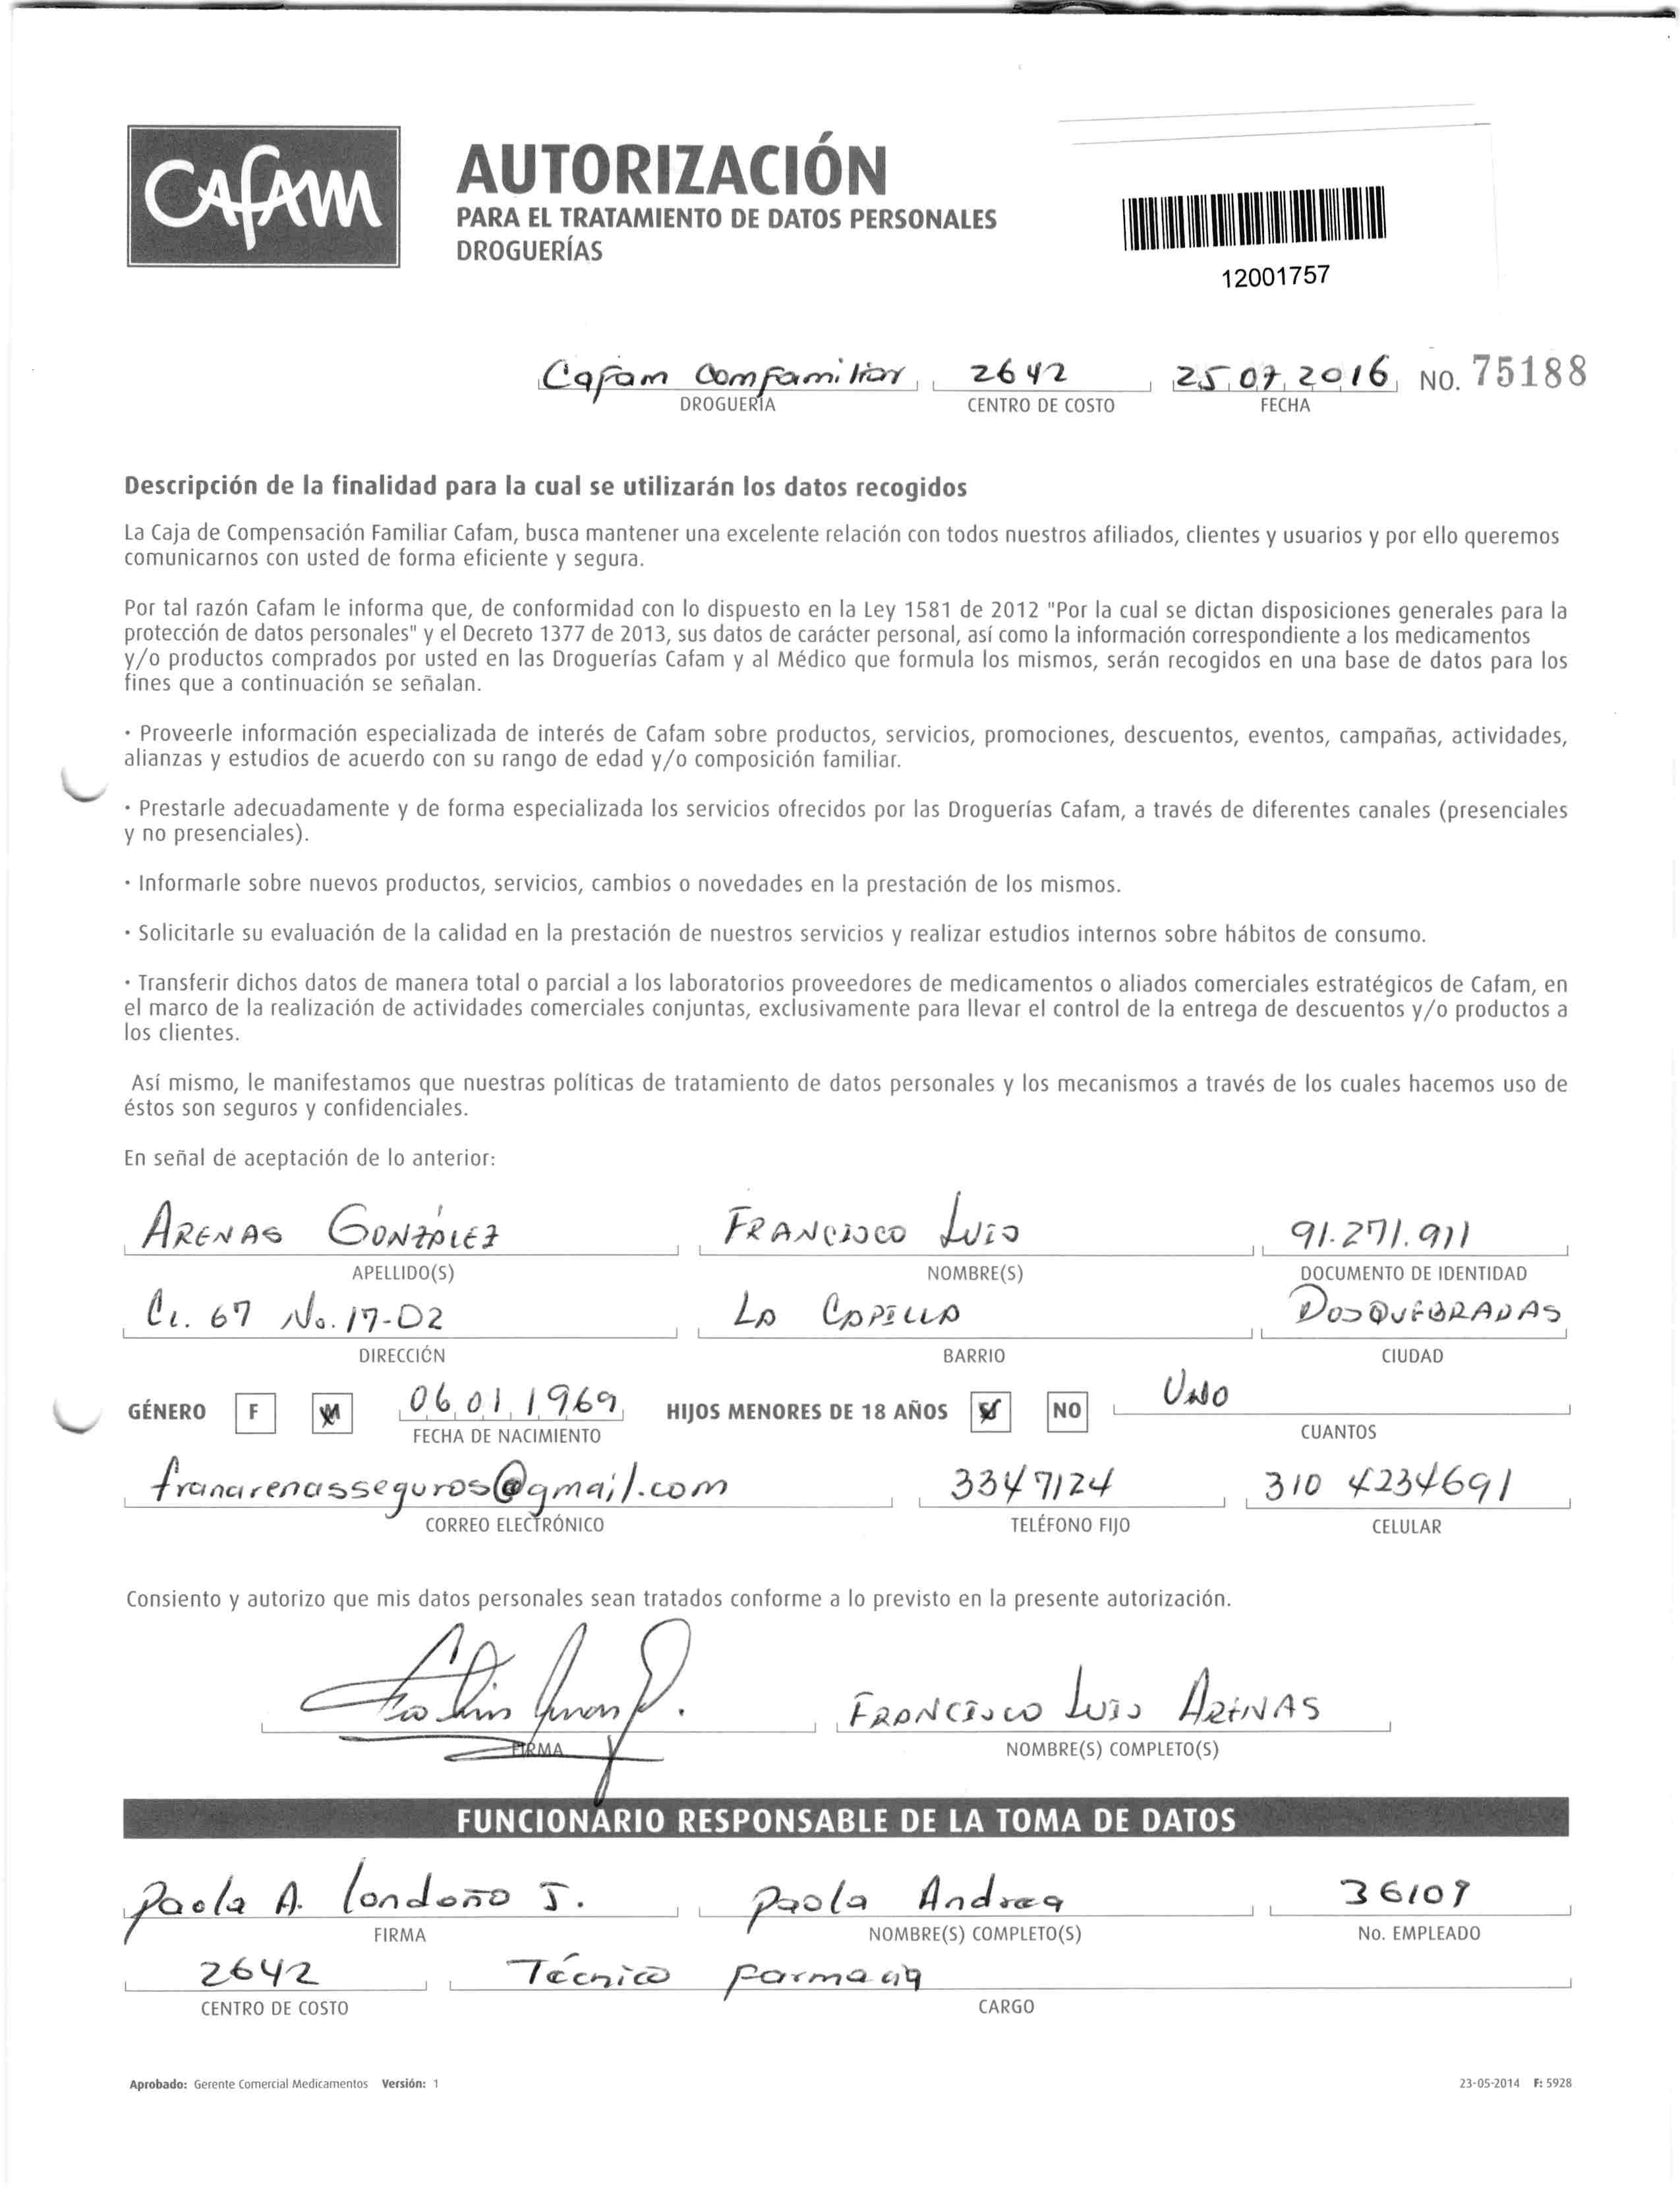 CAFAM
AUTORIZACIÓN
PARA EL TRATAMIENTO DE DATOS PERSONALES
DROGUERÍAS
12001757
Cafam Comfamiliar 2642 25 07 2016 NO. 75188
DROGUERÍA CENTRO DE COSTO FECHA
Descripción de la finalidad para la cual se utilizarán los datos recogidos
La Caja de Compensación Familiar Cafam, busca mantener una excelente relación con todos nuestros afiliados, clientes y usuarios y por ello queremos
comunicarnos con usted de forma eficiente y segura.
Por tal razón Cafam le informa que, de conformidad con lo dispuesto en la Ley 1581 de 2012 "Por la cual se dictan disposiciones generales para la
protección de datos personales" y el Decreto 1377 de 2013, sus datos de carácter personal, así como la información correspondiente a los medicamentos
y/o productos comprados por usted en las Droguerías Cafam y al Médico que formula los mismos, serán recogidos en una base de datos para los
fines que a continuación se señalan.
· Proveerle información especializada de interés de Cafam sobre productos, servicios, promociones, descuentos, eventos, campañas, actividades,
alianzas y estudios de acuerdo con su rango de edad y/o composición familiar.
· Prestarle adecuadamente y de forma especializada los servicios ofrecidos por las Droguerías Cafam, a través de diferentes canales (presenciales
y no presenciales).
· Informarle sobre nuevos productos, servicios, cambios o novedades en la prestación de los mismos.
· Solicitarle su evaluación de la calidad en la prestación de nuestros servicios y realizar estudios internos sobre hábitos de consumo.
· Transferir dichos datos de manera total o parcial a los laboratorios proveedores de medicamentos o aliados comerciales estratégicos de Cafam, en
el marco de la realización de actividades comerciales conjuntas, exclusivamente para llevar el control de la entrega de descuentos y/o productos a
los clientes.
Así mismo, le manifestamos que nuestras políticas de tratamiento de datos personales y los mecanismos a través de los cuales hacemos uso de
éstos son seguros y confidenciales.
En señal de aceptación de lo anterior:
ARENAS GONZÁLEZ FRANCISCO LUIS 91.271.911
APELLIDO(S) NOMBRE(S) DOCUMENTO DE IDENTIDAD
CL. 67 No. 17-02 LA CAPILLA DOSQUEBRADAS
DIRECCIÓN BARRIO CIUDAD
GÉNERO F M 06 01 1969 HIJOS MENORES DE 18 AÑOS SI NO UNO
FECHA DE NACIMIENTO CUANTOS
franarenasseguros@gmail.com 3347124 310 4234691
CORREO ELECTRÓNICO TELÉFONO FIJO CELULAR
Consiento y autorizo que mis datos personales sean tratados conforme a lo previsto en la presente autorización.
FRANCISCO LUIS ARENAS
FIRMA NOMBRE(S) COMPLETO(S)
FUNCIONARIO RESPONSABLE DE LA TOMA DE DATOS
Paola A. Londoño J. Paola Andrea 36107
FIRMA NOMBRE(S) COMPLETO(S) No. EMPLEADO
2642 Técnico Farmacia
CENTRO DE COSTO CARGO
Aprobado: Gerente Comercial Medicamentos Versión: 1 23-05-2014 F: 5928